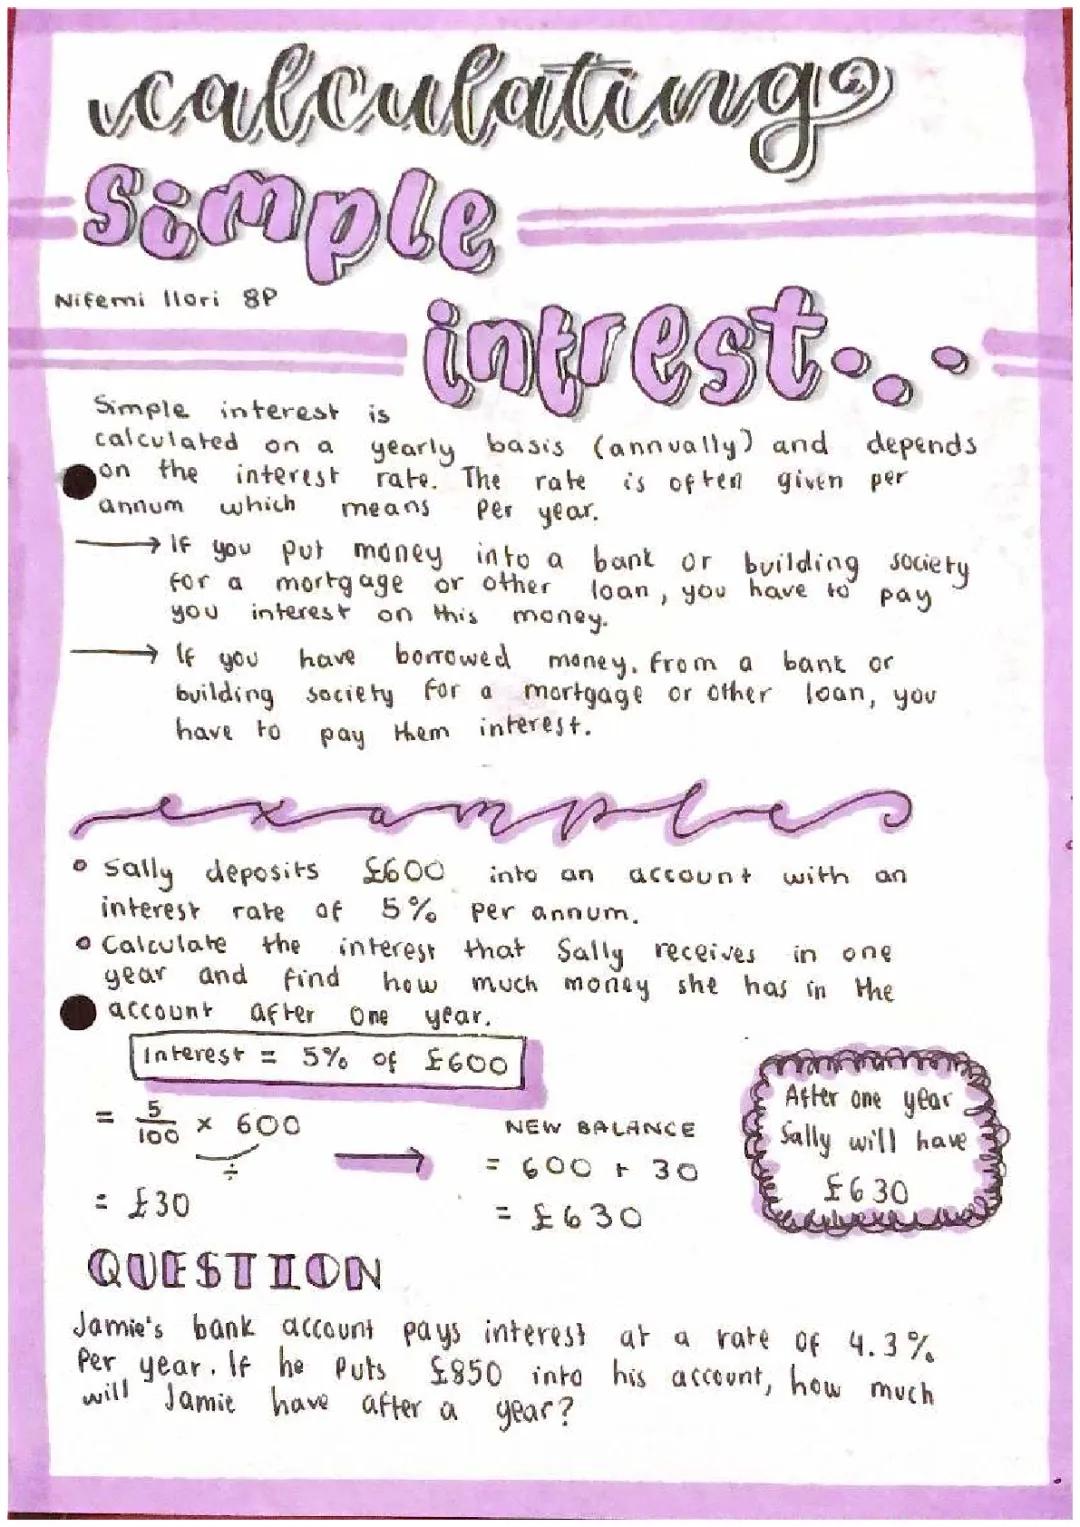 calculating
Simple
Nifemi Ilori 8P
intrest...
Simple interest is
calculated on a yearly basis (annually) and depends
on the interest rate. The rate is often given per
annum which means per year.
→ If you put money into a bank or building society
for a mortgage or other loan, you have to pay
you interest on this money.
→ If you have borrowed money. from a bank or
building society for a mortgage or other loan, you
have to pay them interest.
examples
• Sally deposits £600 into an account with an
interest rate of 5% per annum.
• Calculate the interest that Sally receives in one
year and find how much money she has in the
account after one year.
Interest = 5% of £600
= 5/100 × 600
÷
= £30
→
NEW BALANCE
= 600 + 30
= £630
After one year
Sally will have
£630
QUESTION
Jamie's bank account pays interest at a rate of 4.3%
Per year. If he puts £850 into his account, how much
will Jamie have after a year?